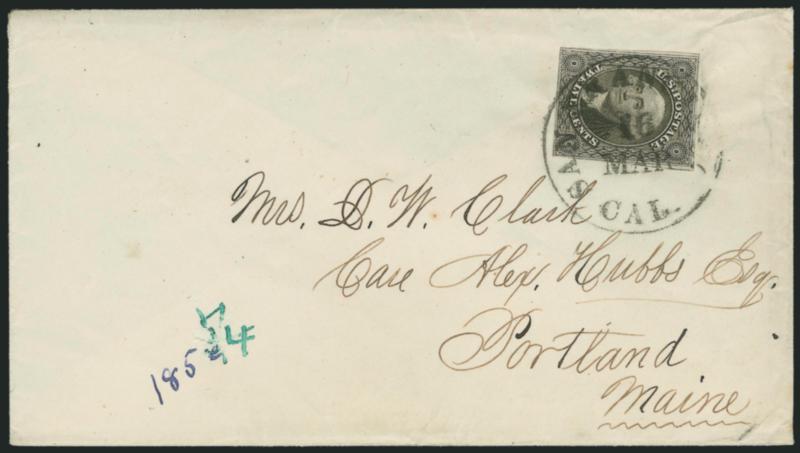 U.S. POSTAGE
TWELVE CENTS
MAR
CAL.
Mrs. D. W. Clark
Care Alex. Hubbs Esq.
Portland
Maine
185
54